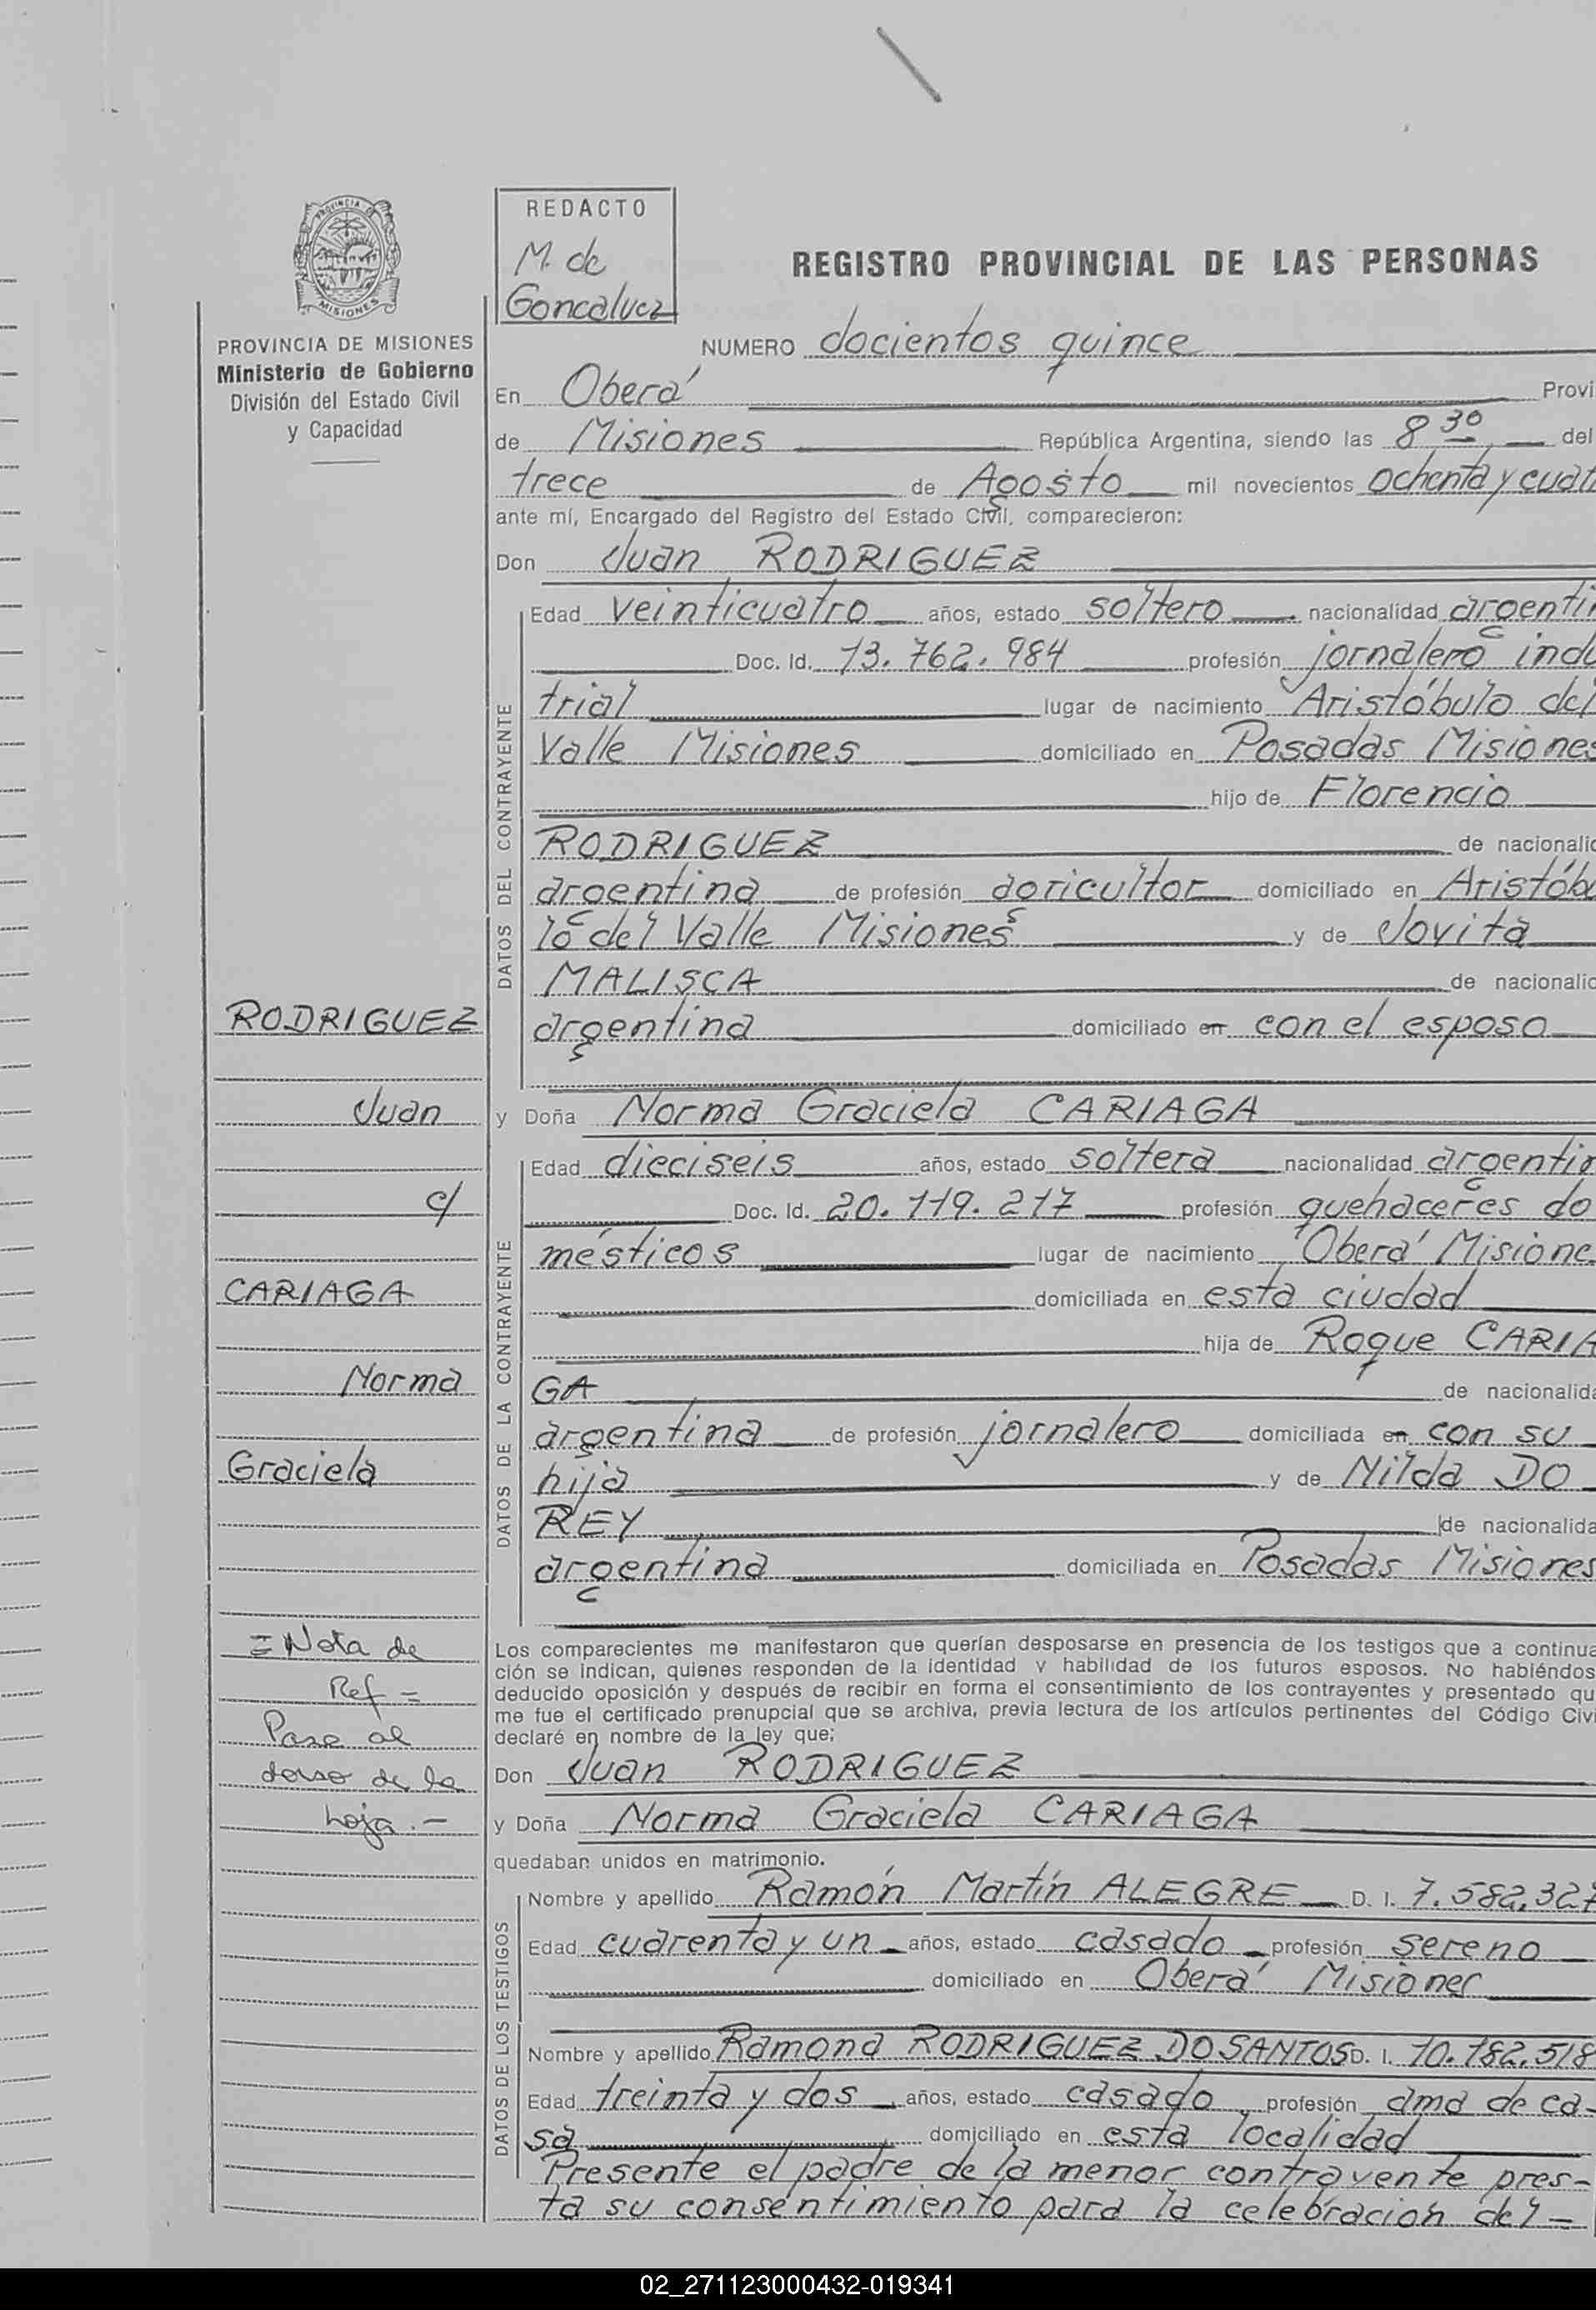 REDACTO
M. de
Goncalvez
PROVINCIA DE
MISIONES
REGISTRO PROVINCIAL DE LAS PERSONAS
PROVINCIA DE MISIONES
Ministerio de Gobierno
División del Estado Civil
y Capacidad
NUMERO docientos quince
En Oberá Provi
de Misiones República Argentina, siendo las 8 30 del
trece de Agosto mil novecientos ochenta y cuat
ante mí, Encargado del Registro del Estado Civil, comparecieron:
Don Juan RODRIGUEZ
DATOS DEL CONTRAYENTE
Edad veinticuatro años, estado soltero nacionalidad argentin
Doc. Id. 13.762.984 profesión jornalero indu
trial lugar de nacimiento Aristóbulo del
Valle Misiones domiciliado en Posadas Misiones
hijo de Florencio
RODRIGUEZ de nacionalid
argentina de profesión agricultor domiciliado en Aristóbu
lo del Valle Misiones y de Jovita
MALISCA de nacionalid
argentina domiciliado en con el esposo
RODRIGUEZ
Juan
c/
CARIAGA
Norma
Graciela
y Doña Norma Graciela CARIAGA
DATOS DE LA CONTRAYENTE
Edad dieciseis años, estado soltera nacionalidad argentin
Doc. Id. 20.119.217 profesión quehaceres do
mésticos lugar de nacimiento Oberá Misione
domiciliada en esta ciudad
hija de Roque CARIA
GA de nacionalida
argentina de profesión jornalero domiciliada en con su
hija y de Nilda DO
REY de nacionalida
argentina domiciliada en Posadas Misiones
= Nota de
Ref =
Pase al
dorso de la
hoja.-
Los comparecientes me manifestaron que querían desposarse en presencia de los testigos que a continua
ción se indican, quienes responden de la identidad y habilidad de los futuros esposos. No habiéndos
deducido oposición y después de recibir en forma el consentimiento de los contrayentes y presentado qu
me fue el certificado prenupcial que se archiva, previa lectura de los artículos pertinentes del Código Civi
declaré en nombre de la ley que:
Don Juan RODRIGUEZ
y Doña Norma Graciela CARIAGA
quedaban unidos en matrimonio.
DATOS DE LOS TESTIGOS
Nombre y apellido Ramón Martín ALEGRE D. I. 7.582.327
Edad cuarenta y un años, estado casado profesión sereno
domiciliado en Oberá Misiones
Nombre y apellido Ramona RODRIGUEZ DO SANTOS D. I. 10.182.518
Edad treinta y dos años, estado casado profesión ama de ca-
sa domiciliado en esta localidad
Presente el padre de la menor contrayente pres-
ta su consentimiento para la celebración del -
02_271123000432-019341